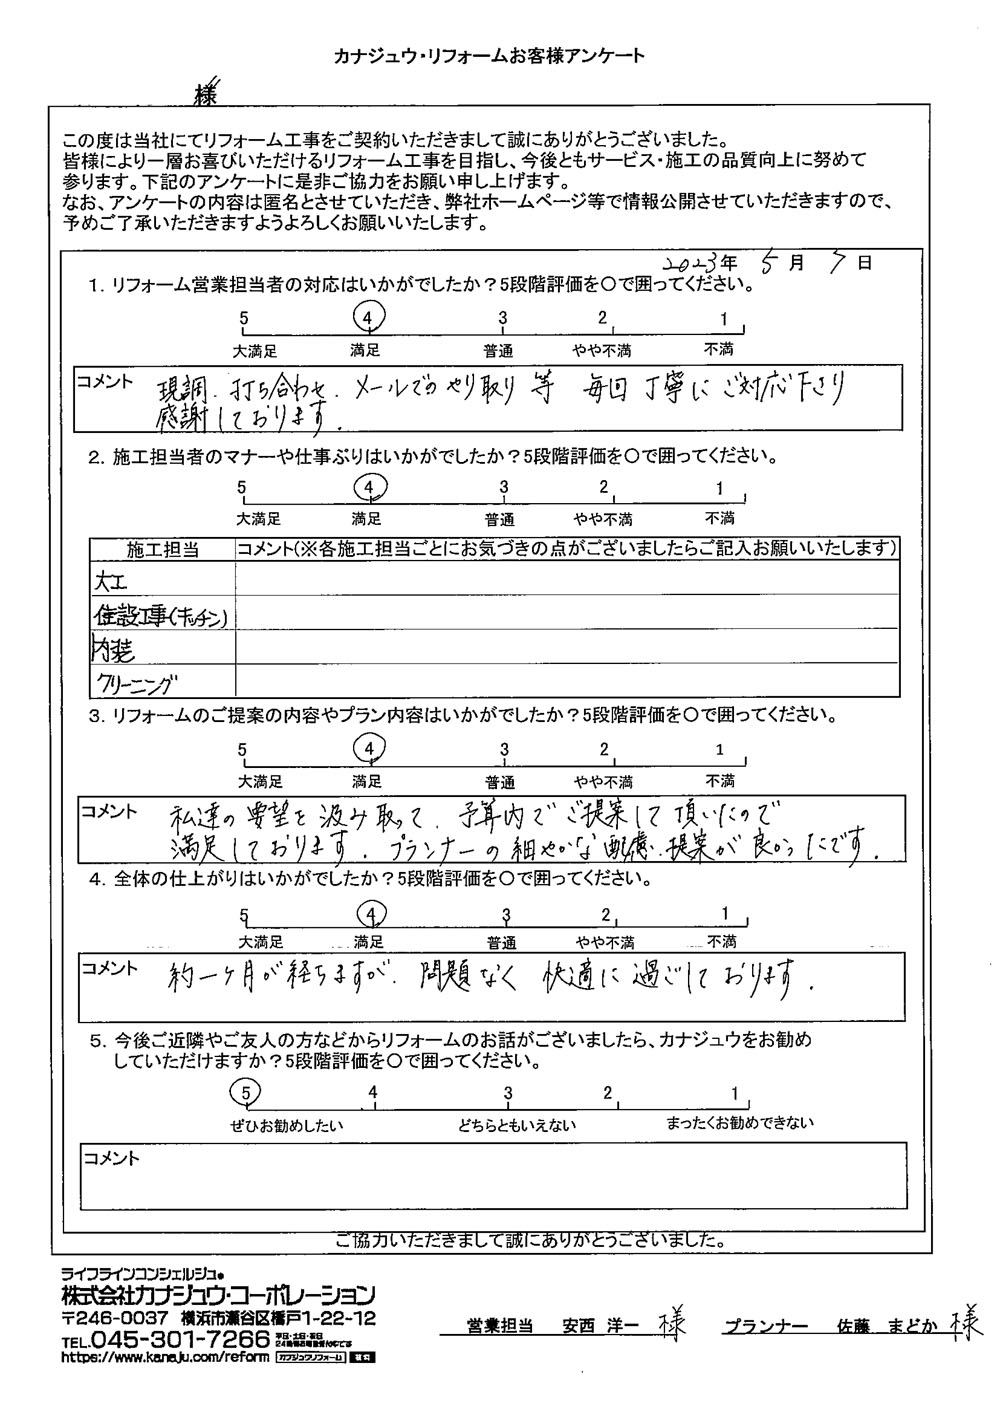 カナジュウ・リフォームお客様アンケート
様
この度は当社にてリフォーム工事をご契約いただきまして誠にありがとうございました。
皆様により一層お喜びいただけるリフォーム工事を目指し、今後ともサービス・施工の品質向上に努めて
参ります。下記のアンケートに是非ご協力をお願い申し上げます。
なお、アンケートの内容は匿名とさせていただき、弊社ホームページ等で情報公開させていただきますので、
予めご了承いただきますようよろしくお願いいたします。
2023年 5月 7日
1. リフォーム営業担当者の対応はいかがでしたか？5段階評価を○で囲ってください。
5 4 3 2 1
大満足 満足 普通 やや不満 不満
コメント 現調、打ち合わせ、メールでのやり取り等 毎回丁寧にご対応下さり
感謝しております。
2. 施工担当者のマナーや仕事ぶりはいかがでしたか？5段階評価を○で囲ってください。
5 4 3 2 1
大満足 満足 普通 やや不満 不満
施工担当 コメント(※各施工担当ごとにお気づきの点がございましたらご記入お願いいたします)
大工
住設工事(キッチン)
内装
クリーニング
3. リフォームのご提案の内容やプラン内容はいかがでしたか？5段階評価を○で囲ってください。
5 4 3 2 1
大満足 満足 普通 やや不満 不満
コメント 私達の要望を汲み取って、予算内でご提案して頂いたので
満足しております。プランナーの細やかな配慮、提案が良かったです。
4. 全体の仕上がりはいかがでしたか？5段階評価を○で囲ってください。
5 4 3 2 1
大満足 満足 普通 やや不満 不満
コメント 約一ヶ月が経ちますが、問題なく 快適に過ごしております。
5. 今後ご近隣やご友人の方などからリフォームのお話がございましたら、カナジュウをお勧め
していただけますか？5段階評価を○で囲ってください。
5 4 3 2 1
ぜひお勧めしたい どちらともいえない まったくお勧めできない
コメント
ご協力いただきまして誠にありがとうございました。
ライフラインコンシェルジュ
株式会社カナジュウ・コーポレーション
〒246-0037 横浜市瀬谷区橋戸1-22-12
TEL.045-301-7266
https://www.kanaju.com/reform カナジュウリフォーム 検索
営業担当 安西 洋一 様 プランナー 佐藤 まどか 様